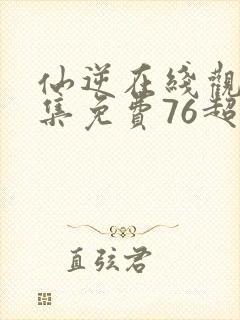 仙逆在綫觀
集免費76超
直弦君